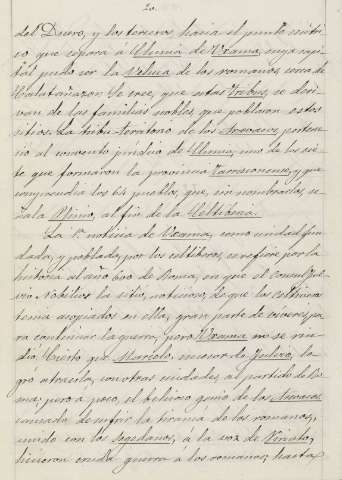 20.
del Duero, y los terceros hacia el punto
que separa á Clunia de Uxama, cuya capi-
tal pudo ser la Veluca de los romanos, cerca de
Calatañazor. Se cree, que estas Tribus, se deri-
van de las familias nobles, que poblaron estos
sitios. La tribu-territorio de los Arevacos, pertene-
ció al convento jurídico de Clunia, uno de los sie-
te que formaron la provincia Tarraconense, y que
comprendia los 64 pueblos, que, sin nombrarlos, se-
ñala Plinio, al fin de la Celtiberia.
La 1ª noticia de Uxama, como ciudad fun-
dada, y poblada, por los celtíberos, se refiere por la
historia al año 600 de Roma, en que el consul Ful-
vio Nobilior la sitió, noticioso, de que los
tenia acopiados en ella, gran parte de viveres, pa-
ra continuar la guerra; pero Uxama no se rin-
dió. Cierto que Marcelo, sucesor de Fulvio, lo-
gró atraerla, con otras ciudades, al partido de Ro-
ma; pero á poco, el belicoso genio de los Arevacos
cansado de sufrir la tirania de los romanos,
unido con los Segedanos, á la voz de Viriato,
hicieron cruda guerra á los romanos, hasta